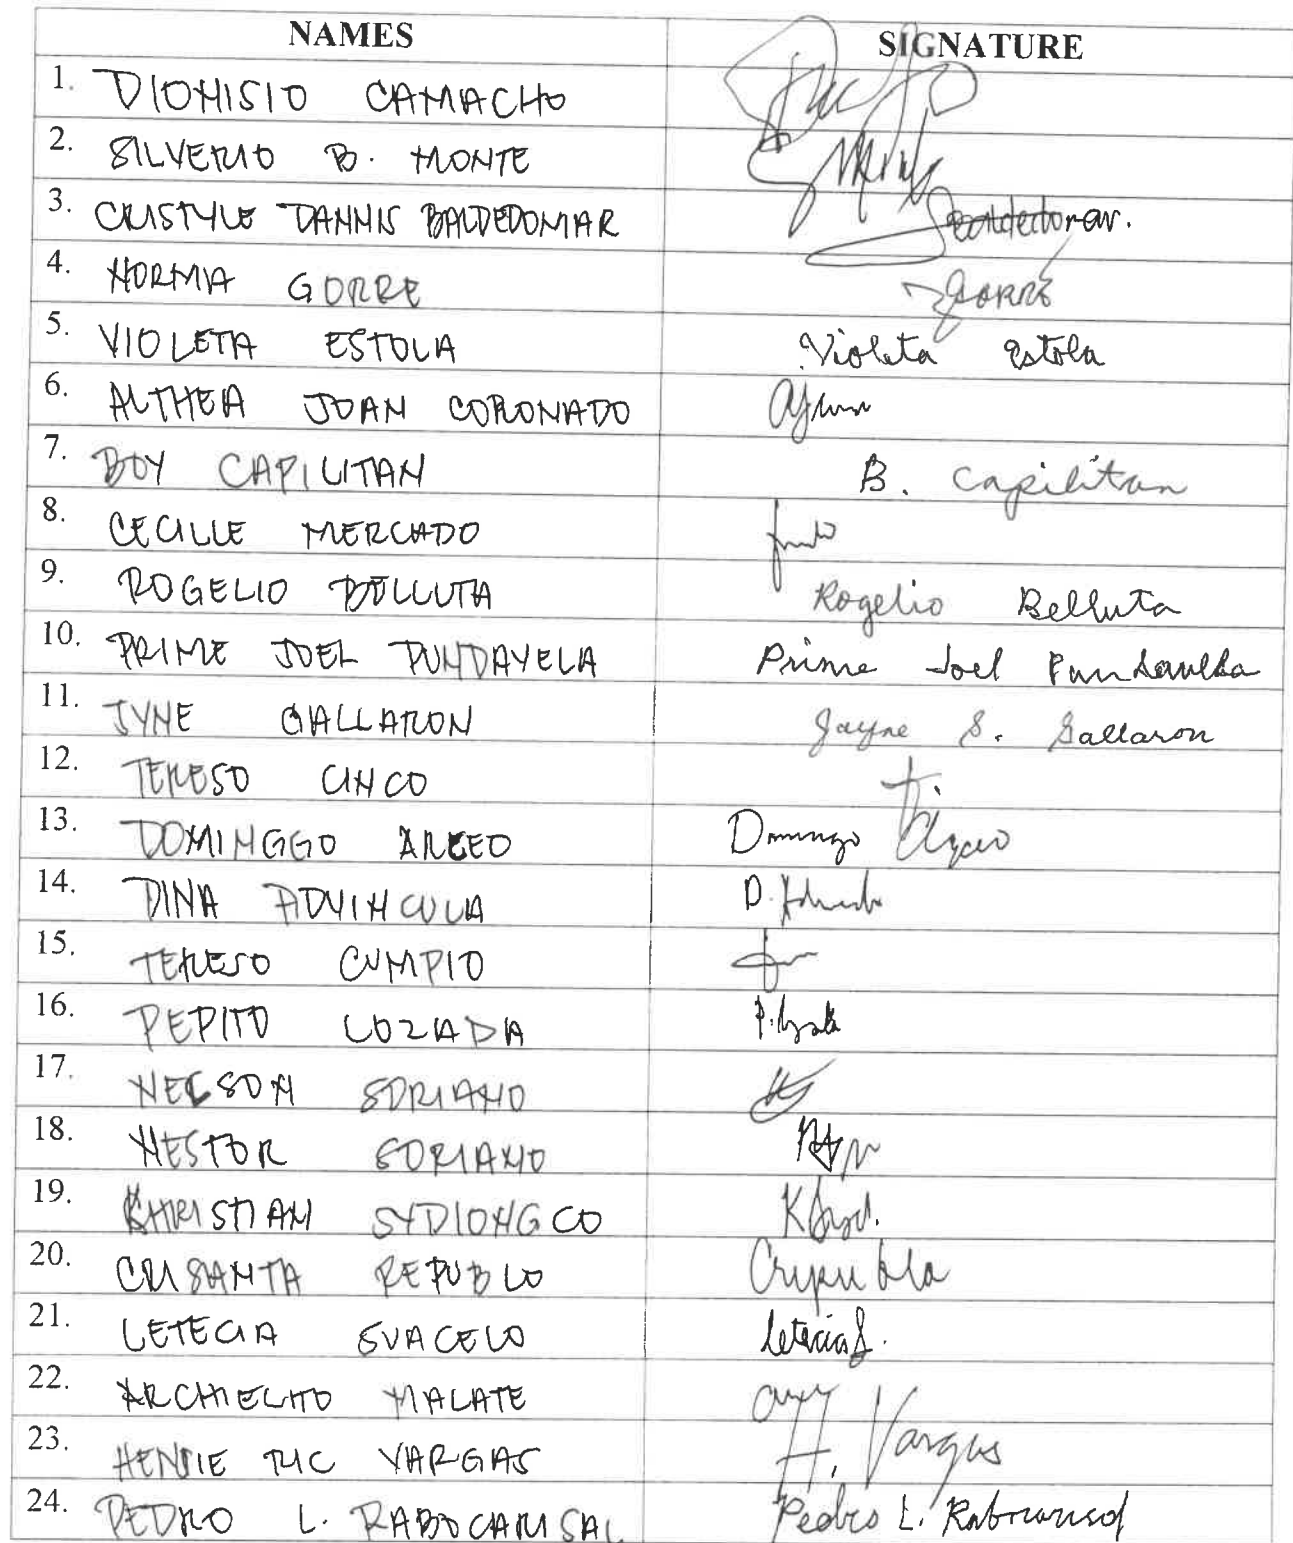 NAMES SIGNATURE
1. DIONISIO CAMACHO
2. SILVERIO B. MONTE
3. CRISTYLE DANNIS BALDEDOMAR Baldedomar.
4. NORMA GORRE Gorre
5. VIOLETA ESTOLA Violeta Estola
6. ALTHEA JOAN CORONADO
7. BOY CAPILITAN B. Capilitan
8. CECILLE MERCADO
9. ROGELIO BELLUTA Rogelio Belluta
10. PRIME JOEL PUNDAVELA Prime Joel Pundavela
11. JYNE GALLARON Jayne S. Gallaron
12. TERESO CINCO
13. DOMINGGO ARCEO Domingo
14. DINA ADVINCULA D.
15. TERESO CUMPIO
16. PEPITO LOZADA
17. NELSON SORIANO
18. NESTOR SORIANO
19. KHRISTIAN SYDIONGCO
20. CRISANTA REPUBLO
21. LETECIA EVACELO
22. ARCHIELITO MALATE
23. HENDIE RIC VARGAS H. Vargas
24. PEDRO L. RABOCARISAL Pedro L.